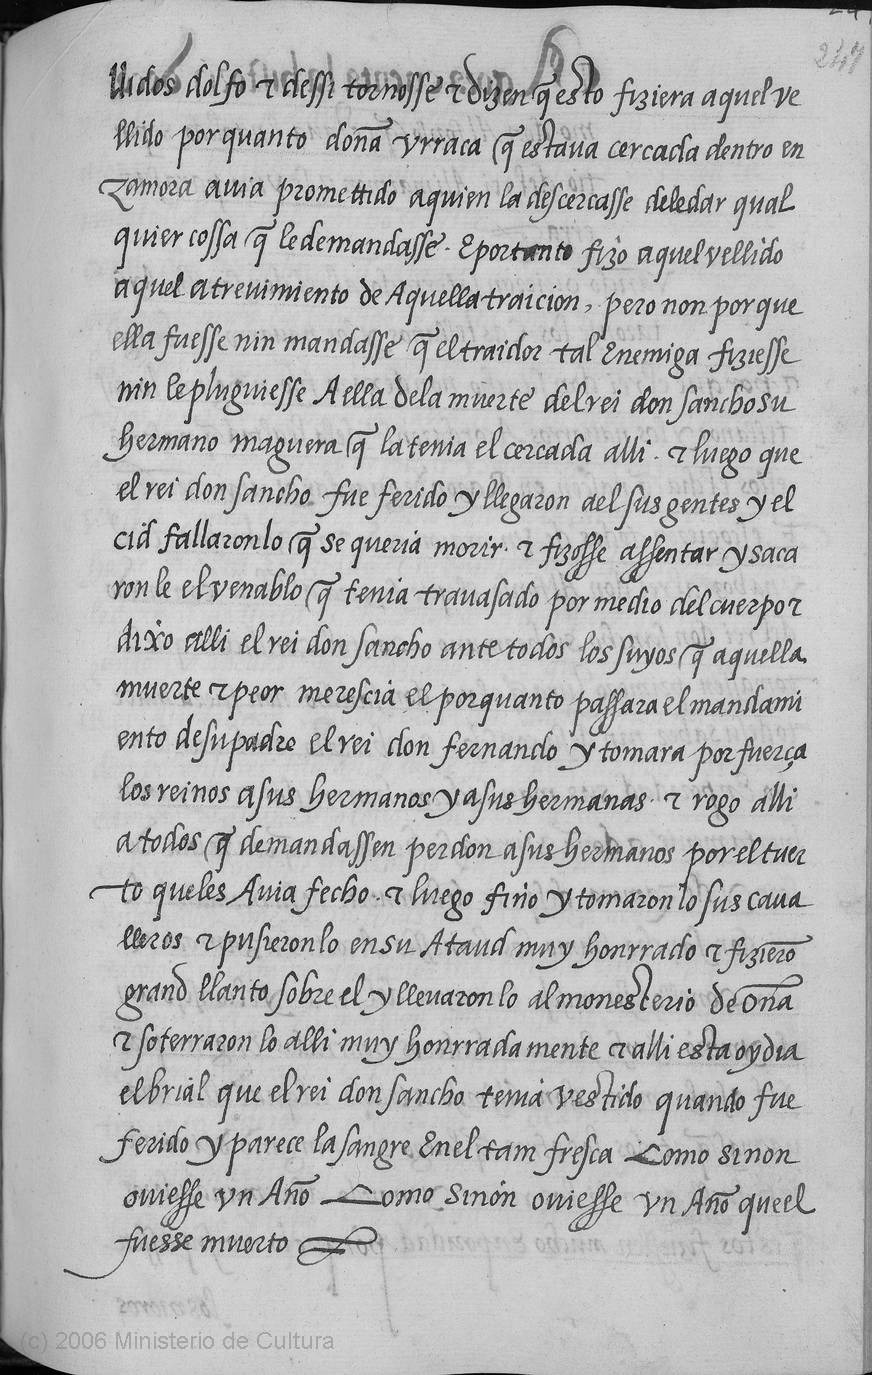 247
llidos dolfo τ dessi tornosse τ dizen q̃ esto fiziera aquel ve
llido por quanto doña vrraca q̃ estaua cercada dentro en
zamora auia promettido a quien la descercasse de le dar qual
quier cossa q̃ le demandasse. E por tanto fizo aquel vellido
aquel atreuimiento de Aquella traicion, pero non por que
ella fuesse nin mandasse q̃ el traidor tal Enemiga fiziesse
nin le pluguiesse A ella de la muerte del rei don sancho su
hermano maguera q̃ la tenia el cercada alli. τ luego que
el rei don sancho fue ferido y llegaron a el sus gentes y el
cid fallaron lo q̃ se queria morir. τ fizosse assentar y saca
ron le el venablo q̃ tenia trauasado por medio del cuerpo τ
dixo alli el rei don sancho ante todos los suyos q̃ aquella
muerte τ peor merescia el por quanto passara el mandami
ento de su padre el rei don fernando y tomara por fuerça
los reinos a sus hermanos y a sus hermanas. τ rogo alli
a todos q̃ demandassen perdon a sus hermanos por el tuer
to que les Auia fecho. τ luego fino y tomaron lo sus caua
lleros τ pusieron lo en su Ataud muy honrrado τ fizierõ
grand llanto sobre el y lleuaron lo al monesterio de Oña
τ soterraron lo alli muy honrrada mente τ alli esta oy dia
el brial que el rei don sancho tenia vestido quando fue
ferido y parece la sangre En el tam fresca Como sinon
ouiesse vn Año Como sinon ouiesse vn Año que el
fuesse muerto
(c) 2006 Ministerio de Cultura